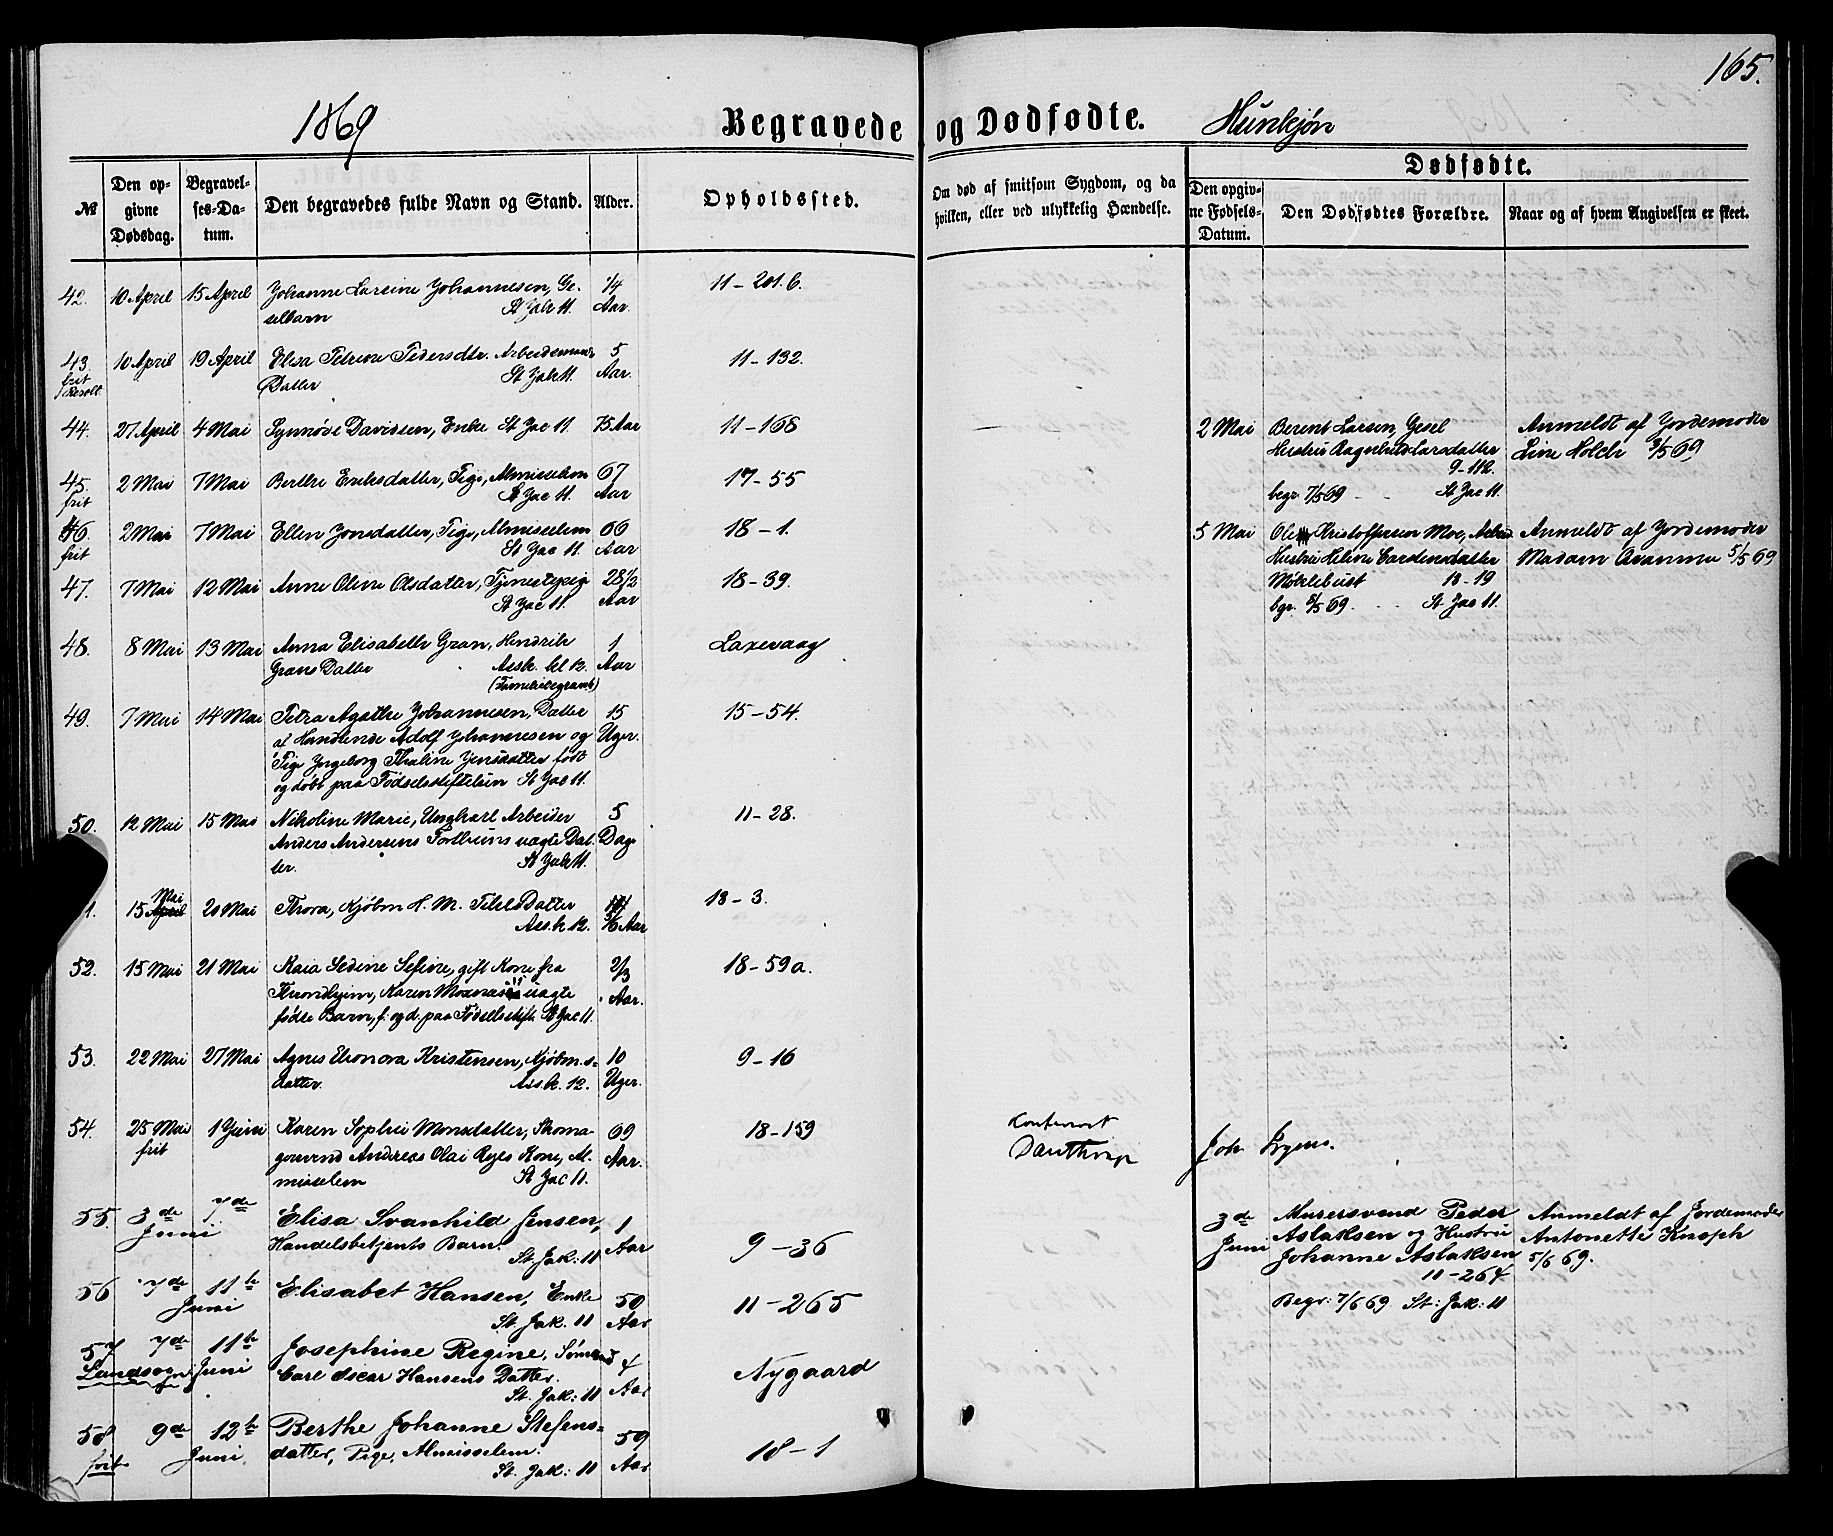 165.
1869 Begravede og Dødfødte. Hunkjøn
Dødfødte.
№ Den opgivne Dødsdag. Begravelses-Datum. Den begravedes fulde Navn og Stand. Alder. Opholdssted. Om død af smitsom Sygdom, og da hvilken, eller ved ulykkelig Hændelse. Den opgivne Fødsels-Datum. Den Dødfødtes Forældre. Naar og af hvem Angivelsen er skeet.
42. 10 April 15 April Johanne Larsine Johannesen, Ge- 1/4 11-201.b.
selbarn St Jak 11. Aar.
43. 10 April 19 April Elisa Petrine Pedersdtr. Arbeidsmands 5 11-132.
frit Datter St Jak 11. Aar.
Resolt.
44. 27 April 4 Mai Synnøve Davidsen, Enke St Jac 11. 75 Aar 11-168
45. 2 Mai 7 Mai Berthe Eriksdatter, Pige, Almisselem 67 17-55
frit St Jac 11. Aar
46. 2 Mai 7 Mai Ellen Jonsdatter, Pige, Almisselem 66 18-1.
frit St Jac 11. Aar
47. 7 Mai 12 Mai Anne Oline Olsdatter, Tjenestepige 28 1/2 18-39.
St Jac 11. Aar
48. 8 Mai 13 Mai Anna Elisabeth Gran, Hendrik 1 Laxevaag
Grans Datter Assk. kl 12. Aar
(Familiebegravels)
49. 7 Mai 14 Mai Petra Agathe Johannesen, Datter 15 15-54.
af Handlende Adolf Johannesen og Uger.
Pige Ingeborg Thaline Jensdatter født
og døbt paa Fødselsstiftelsen St Jac 11.
50. 12 Mai 15 Mai Nikoline Marie, Ungkarl Arbeider 5 11-28.
Anders Andersens Fortbuns uægte Dat- Dage
ter. St Jak 11.
1. 15 Mai 20 Mai Thora, Kjøbm H. M. Datter 18-3.
Ass.k 12. 5/6 Aar
52. 15 Mai 21 Mai Kaia Sedine Sefine, gift Kone fra 2/3 18-59a.
Throndhjem, Karen uægte Aar.
fødte Barn, f. og d. paa Fødselsstift. St Jac 11.
53. 22 Mai 27 Mai Agnes Eleonora Kristensen, Kjøbm.s- 10 9-16
datter. Ass.k. 12. Uger.
54. 25 Mai 1 Juni Karen Sophie Monsdatter, Skoma- 69 18-159
frit gersvend Andreas Olai Ryes Kone, Al- Aar.
misselem St Jac 11.
55. 3de 7de Elisa Svanhild Jensen, 1 9-36
Juni Handelsbetjents Barn. Aar
St. Jak: 11
56 7de 11te Elisabet Hansen, Enke 50 11-265
Juni St. Jak. 11 Aar
57 7de 11te Josephine Regine, Sømand 4 Nygaard
Landsogn Juni Carl Oscar Hansens Datter. Aar
St. Jak: 11
58 9de 12te Berthe Johanne Stefens- 59 18-1
frit Juni datter, Pige, Almisselem. Aar
St. Jak: 11
2 Mai Berent Larsen, Gesel Anmeldt af Jordemoder
Hustru Aagerhild Larsdatter Line Holck 3/5 69
9-112.
begr. 7/5 69 St Jac 11.
5 Mai Ole Kristoffersen Moe, Arbeid. Anmeldt af Jordemoder
Hustru Helene Carstensdatter Madam 5/5 69
Møklebust 18-19
bgr. 8/5 69. St Jac 11.
Konfereret
Joh
3de Murersvend Peder Anmeldt af Jordemoder
Juni Aslaksen og Hustru Antonette Knoph
Johanne Aslaksen 5/6 69.
11-264
Begr: 7/6 69 St: Jak: 11